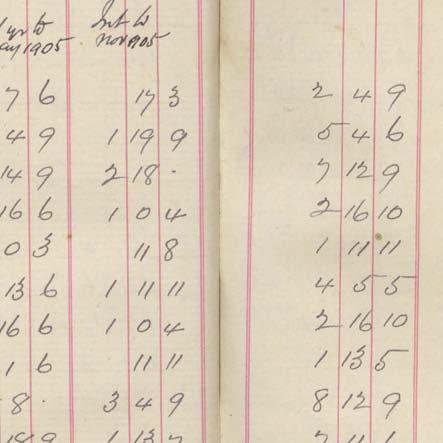 yr to Int to
ay 1905 Nov 1905
7 6 17 3 2 4 9
4 9 1 19 9 5 4 6
14 9 2 18 · 7 12 9
16 6 1 0 4 2 16 10
0 3 11 8 1 11 11
13 6 1 11 11 4 5 5
16 6 1 0 4 2 16 10
1 6 11 11 1 13 5
8 · 3 4 9 8 12 9